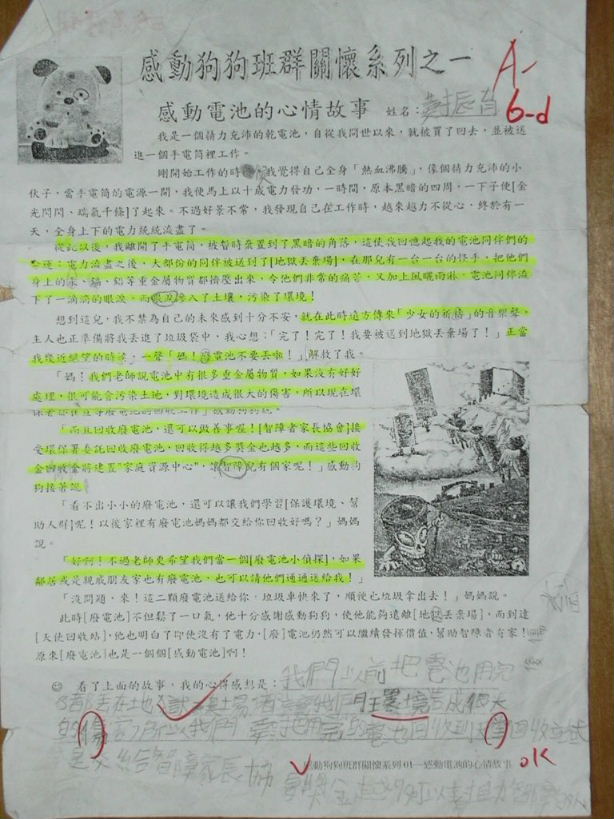 感動狗狗班群關懷系列之一
A-
感動電池的心情故事 姓名:
6-d
我是一個精力充沛的乾電池,自從我問世以來,就被買了回去,並被送
進一個手電筒裡工作。
剛開始工作的時 我覺得自己全身「熱血沸騰」,像個精力充沛的小
伙子,當手電筒的電源一開,我便馬上以十成電力發功,一時間,原本黑暗的四周,一下子便[金
光閃閃、瑞氣千條]了起來。不過好景不常,我發現自己在工作時,越來越力不從心,終於有一
天,全身上下的電力統統流盡了。
從記以後,我離開了手電筒,被暫時棄置到了黑暗的角落,這使我回憶起我的電池同伴們的
電力流盡之後,大部份的同伴被送到了[地獄丟棄場],在那兒有一台一台的怪手,把他們
身上的汞、鎘、鋁等重金屬物質都擠壓出來,令他們非常的痛苦,又加上風曬雨淋,電池同伴流
下了一滴滴的眼淚,而 入了土壤,污染了環境!
想到這兒,我不禁為自己的未來感到十分不安,就在此時遠方傳來「少女的祈禱」的音樂聲。
主人也正準備將我丟進了垃圾袋中,我心想:「完了!完了!我要被送到地獄丟棄場了!」正當
我幾近絕望的時候,一聲「媽!廢電池不要丟啦!」解救了我。
「媽!我們老師說電池中有很多重金屬物質,如果沒有好好
處理,很可能會污染土地,對環境造成很大的傷害,所以現在環
保署在宣導廢電池的回收工作」感動狗狗說。
「而且回收廢電池,還可以做善事喔![智障者家長協會]接
受環保署委託回收廢電池,回收得越多獎金也越多,而這些回收
金回收金將建置"家庭資源中心",讓智障兒有個家呢!」感動狗
狗接著說
「看不出小小的廢電池,還可以讓我們學習[保護環境、幫
助人群]呢!以後家裡有廢電池媽媽都交給你回收好嗎?」媽媽
說。
「好啊!不過老師更希望我們當一個[廢電池小偵探],如果
鄰居或是親戚朋友家也有廢電池,也可以請他們通通送給我!」
「沒問題,來!這二顆廢電池送給你,垃圾車快來了,順便把垃圾拿出去!」媽媽說。
此時[廢電池]不但鬆了一口氣,他十分感謝感動狗狗,使他能夠遠離[地獄丟棄場],而到達
[天使回收站],他也明白了即使沒有了電力,[廢]電池仍然可以繼續發揮價值,幫助智障者有家!
原來[廢電池]也是一個個[感動電池]啊!
看了上面的故事,我的心得感想是:我們以前把電池用完
給智障家長協
感動狗狗班群關懷系列01—感動電池的心情故事
ok